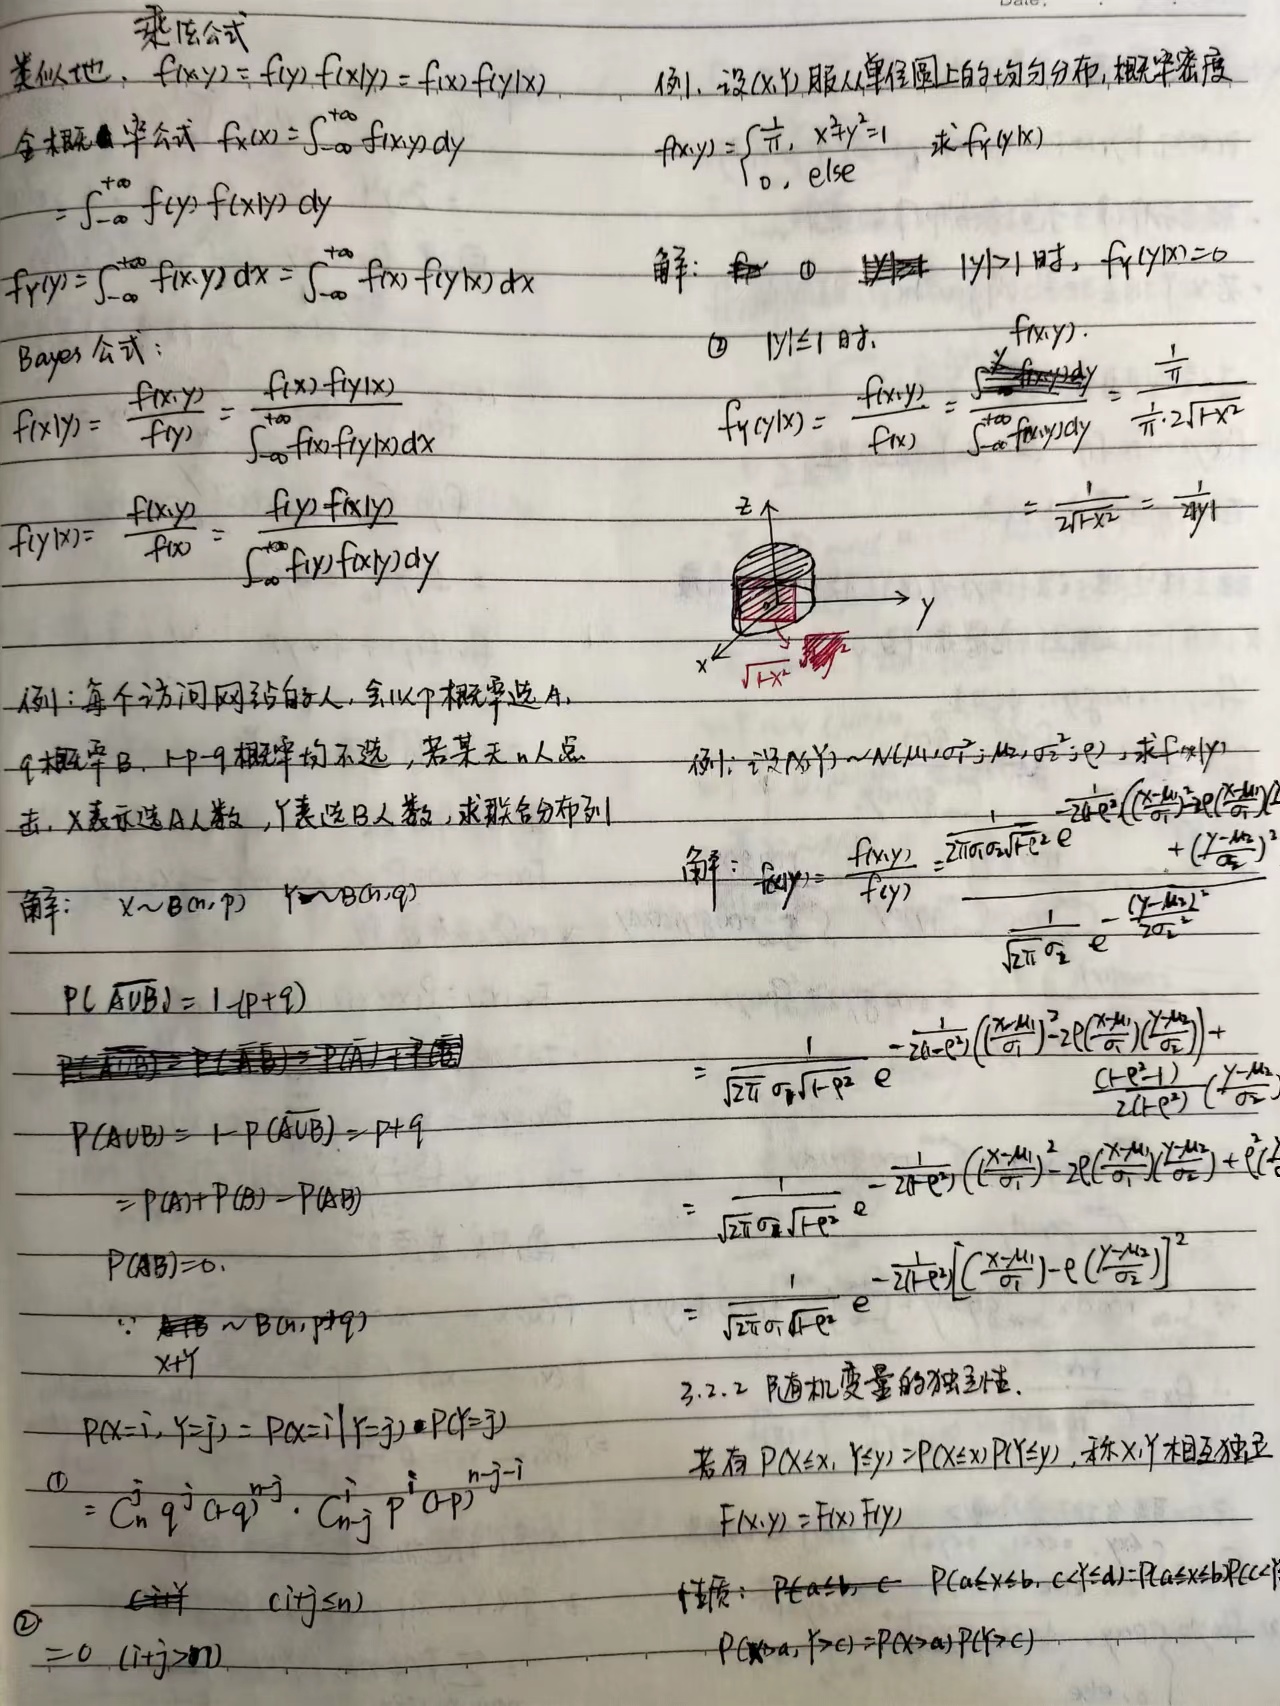 乘法公式
类似地，f(x,y)=f(y)f(x|y)=f(x)f(y|x)
全概率公式 fx(x)=∫_{-∞}^{+∞} f(x,y)dy
=∫_{-∞}^{+∞} f(y)f(x|y)dy
f_Y(y)=∫_{-∞}^{+∞} f(x,y)dx=∫_{-∞}^{+∞} f(x)f(y|x)dx
Bayes公式：
f(x|y)=f(x,y)/f(y)=f(x)f(y|x)/∫_{-∞}^{+∞} f(x)f(y|x)dx
f(y|x)=f(x,y)/f(x)=f(y)f(x|y)/∫_{-∞}^{+∞} f(y)f(x|y)dy
例：每个访问网站的人，会以P概率选A，
q概率B，1-p-q概率均不选，若某天n人点
击，X表示选A人数，Y表选B人数，求联合分布列
解： X~B(n,p) Y~B(n,q)
P(\overline{A∪B})=1-(p+q)
P(A∪B)=1-P(\overline{A∪B})=p+q
=P(A)+P(B)-P(AB)
P(AB)=0.
∵ X+Y ~B(n,p+q)
P(X=i, Y=j)=P(X=i|Y=j)·P(Y=j)
① =C_n^j q^j (1-q)^{n-j}·C_{n-j}^i p^i (1-p)^{n-j-i}
(i+j≤n)
② =0 (i+j>n)
例. 设(X,Y)服从单位圆上的均匀分布，概率密度
f(x,y)={1/π, x²+y²=1
0, else 求f_Y(y|x)
解： ① |y|>1时，f_Y(y|x)=0
② |y|≤1时.
f_Y(y|x)=f(x,y)/f(x)=f(x,y)./∫_{-∞}^{+∞} f(x,y)dy=(1/π)/(1/π·2√(1-x²))
=1/(2√(1-x²))=1/(2|y|)
z
y
x
√(1-x²)
例：设(X,Y)~N(μ₁,σ₁²;μ₂,σ₂²;ρ)，求f(x|y)
解：f(x|y)=f(x,y)/f(y)=1/(2πσ₁σ₂√(1-ρ²)) e^{-1/(2(1-ρ²))((x-μ₁/σ₁)²-2ρ(x-μ₁/σ₁)(
+(y-μ₂/σ₂)²
1/(√(2π)σ₂) e^{-(y-μ₂)²/(2σ₂²)}
=1/(√(2π)σ₁√(1-ρ²)) e^{-1/(2(1-ρ²))((x-μ₁/σ₁)²-2ρ(x-μ₁/σ₁)(y-μ₂/σ₂))+
(1-ρ²-1)/(2(1-ρ²))(y-μ₂/σ₂)
=1/(√(2π)σ₁√(1-ρ²)) e^{-1/(2(1-ρ²))((x-μ₁/σ₁)²-2ρ(x-μ₁/σ₁)(y-μ₂/σ₂)+ρ²(
=1/(√(2π)σ₁√(1-ρ²)) e^{-1/(2(1-ρ²))[(x-μ₁/σ₁)-ρ(y-μ₂/σ₂)]²}
3.2.2 随机变量的独立性.
若有P(X≤x, Y≤y)=P(X≤x)P(Y≤y)，称X,Y相互独立
F(x,y)=F(x)F(y)
性质： P(a≤x≤b, c<Y≤d)=P(a≤x≤b)P(c<Y
P(X>a, Y>c)=P(X>a)P(Y>c)